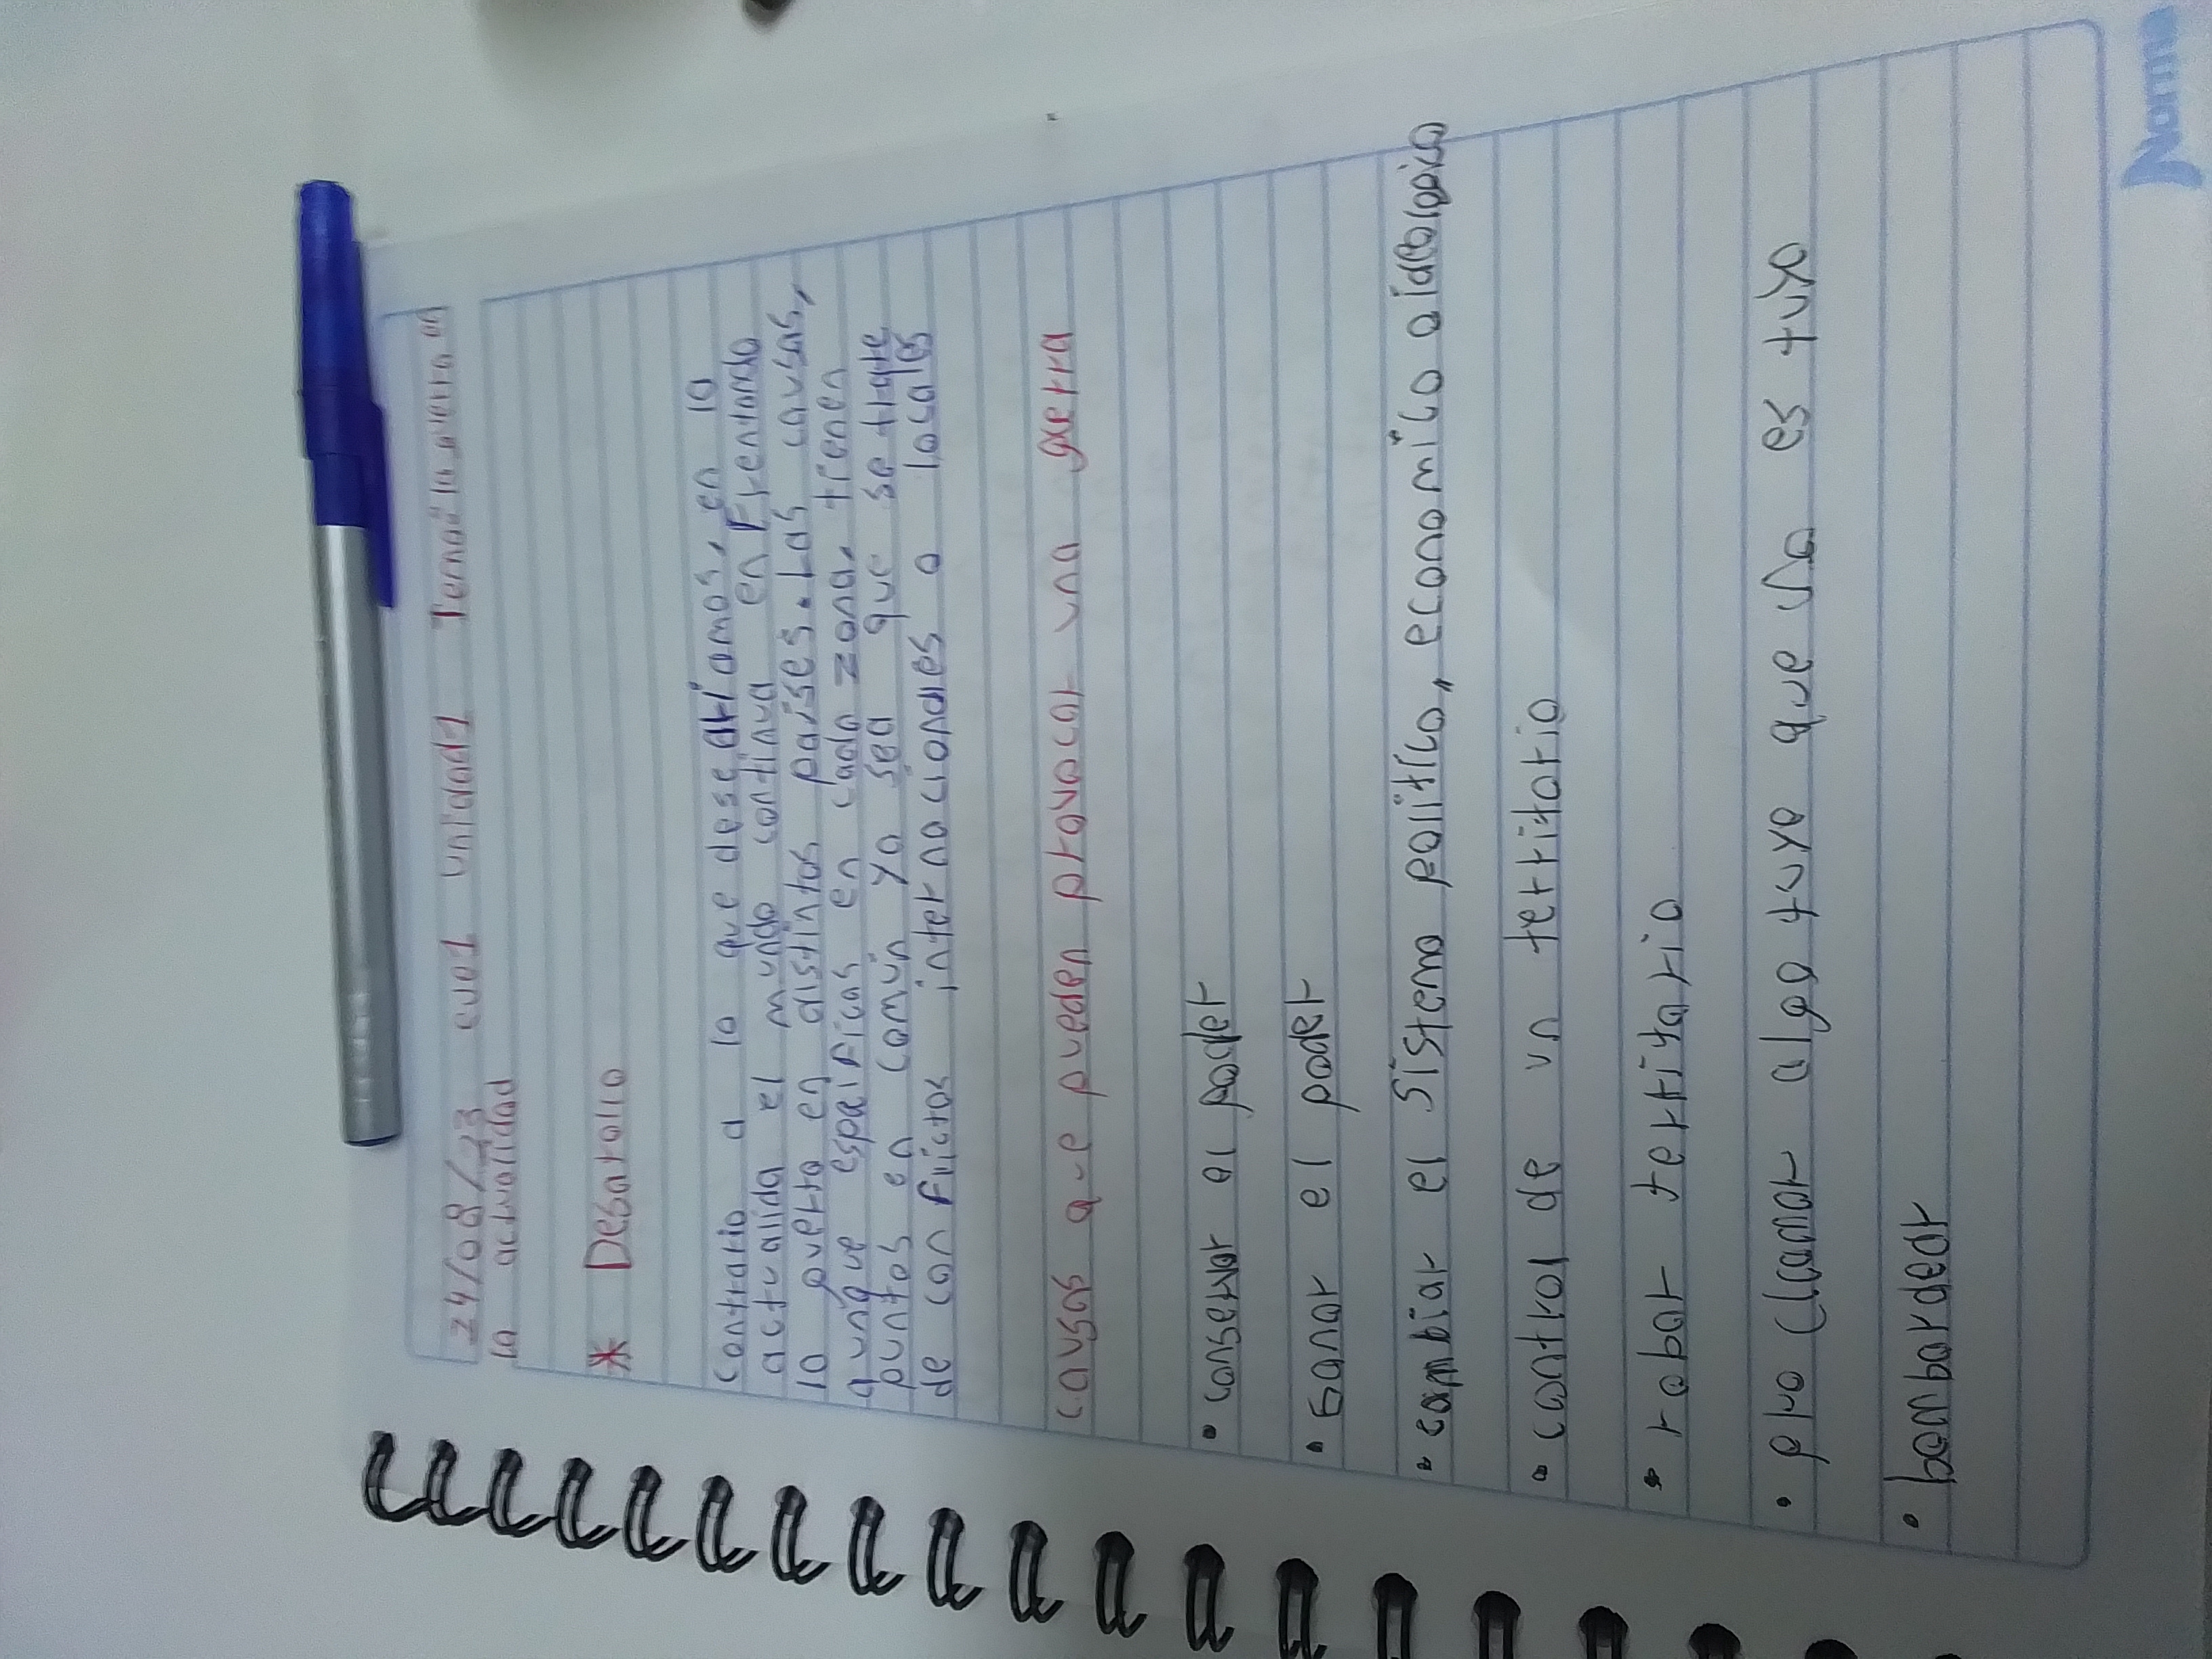 24/08/23 eve1 unidad1 Tema: la guerra en
la actualidad
* Desarollo
contrario a lo que desearíamos, en la
actualida el mundo continua en Frentando
la guerra en distintos países. Las causas,
aunque espeificas en cada zona, tienen
puntos en común ya sea que se trate
de con Flictos internacionales o locales
causas que pueden provocar una gerra
• conserbar el poder
• Ganar el poder
• cambiar el sistema politico, economico o ideologico
• control de un territorio
• robar territorio
• plo clamar algo tuyo que no es tuyo
• banbardear
Norma